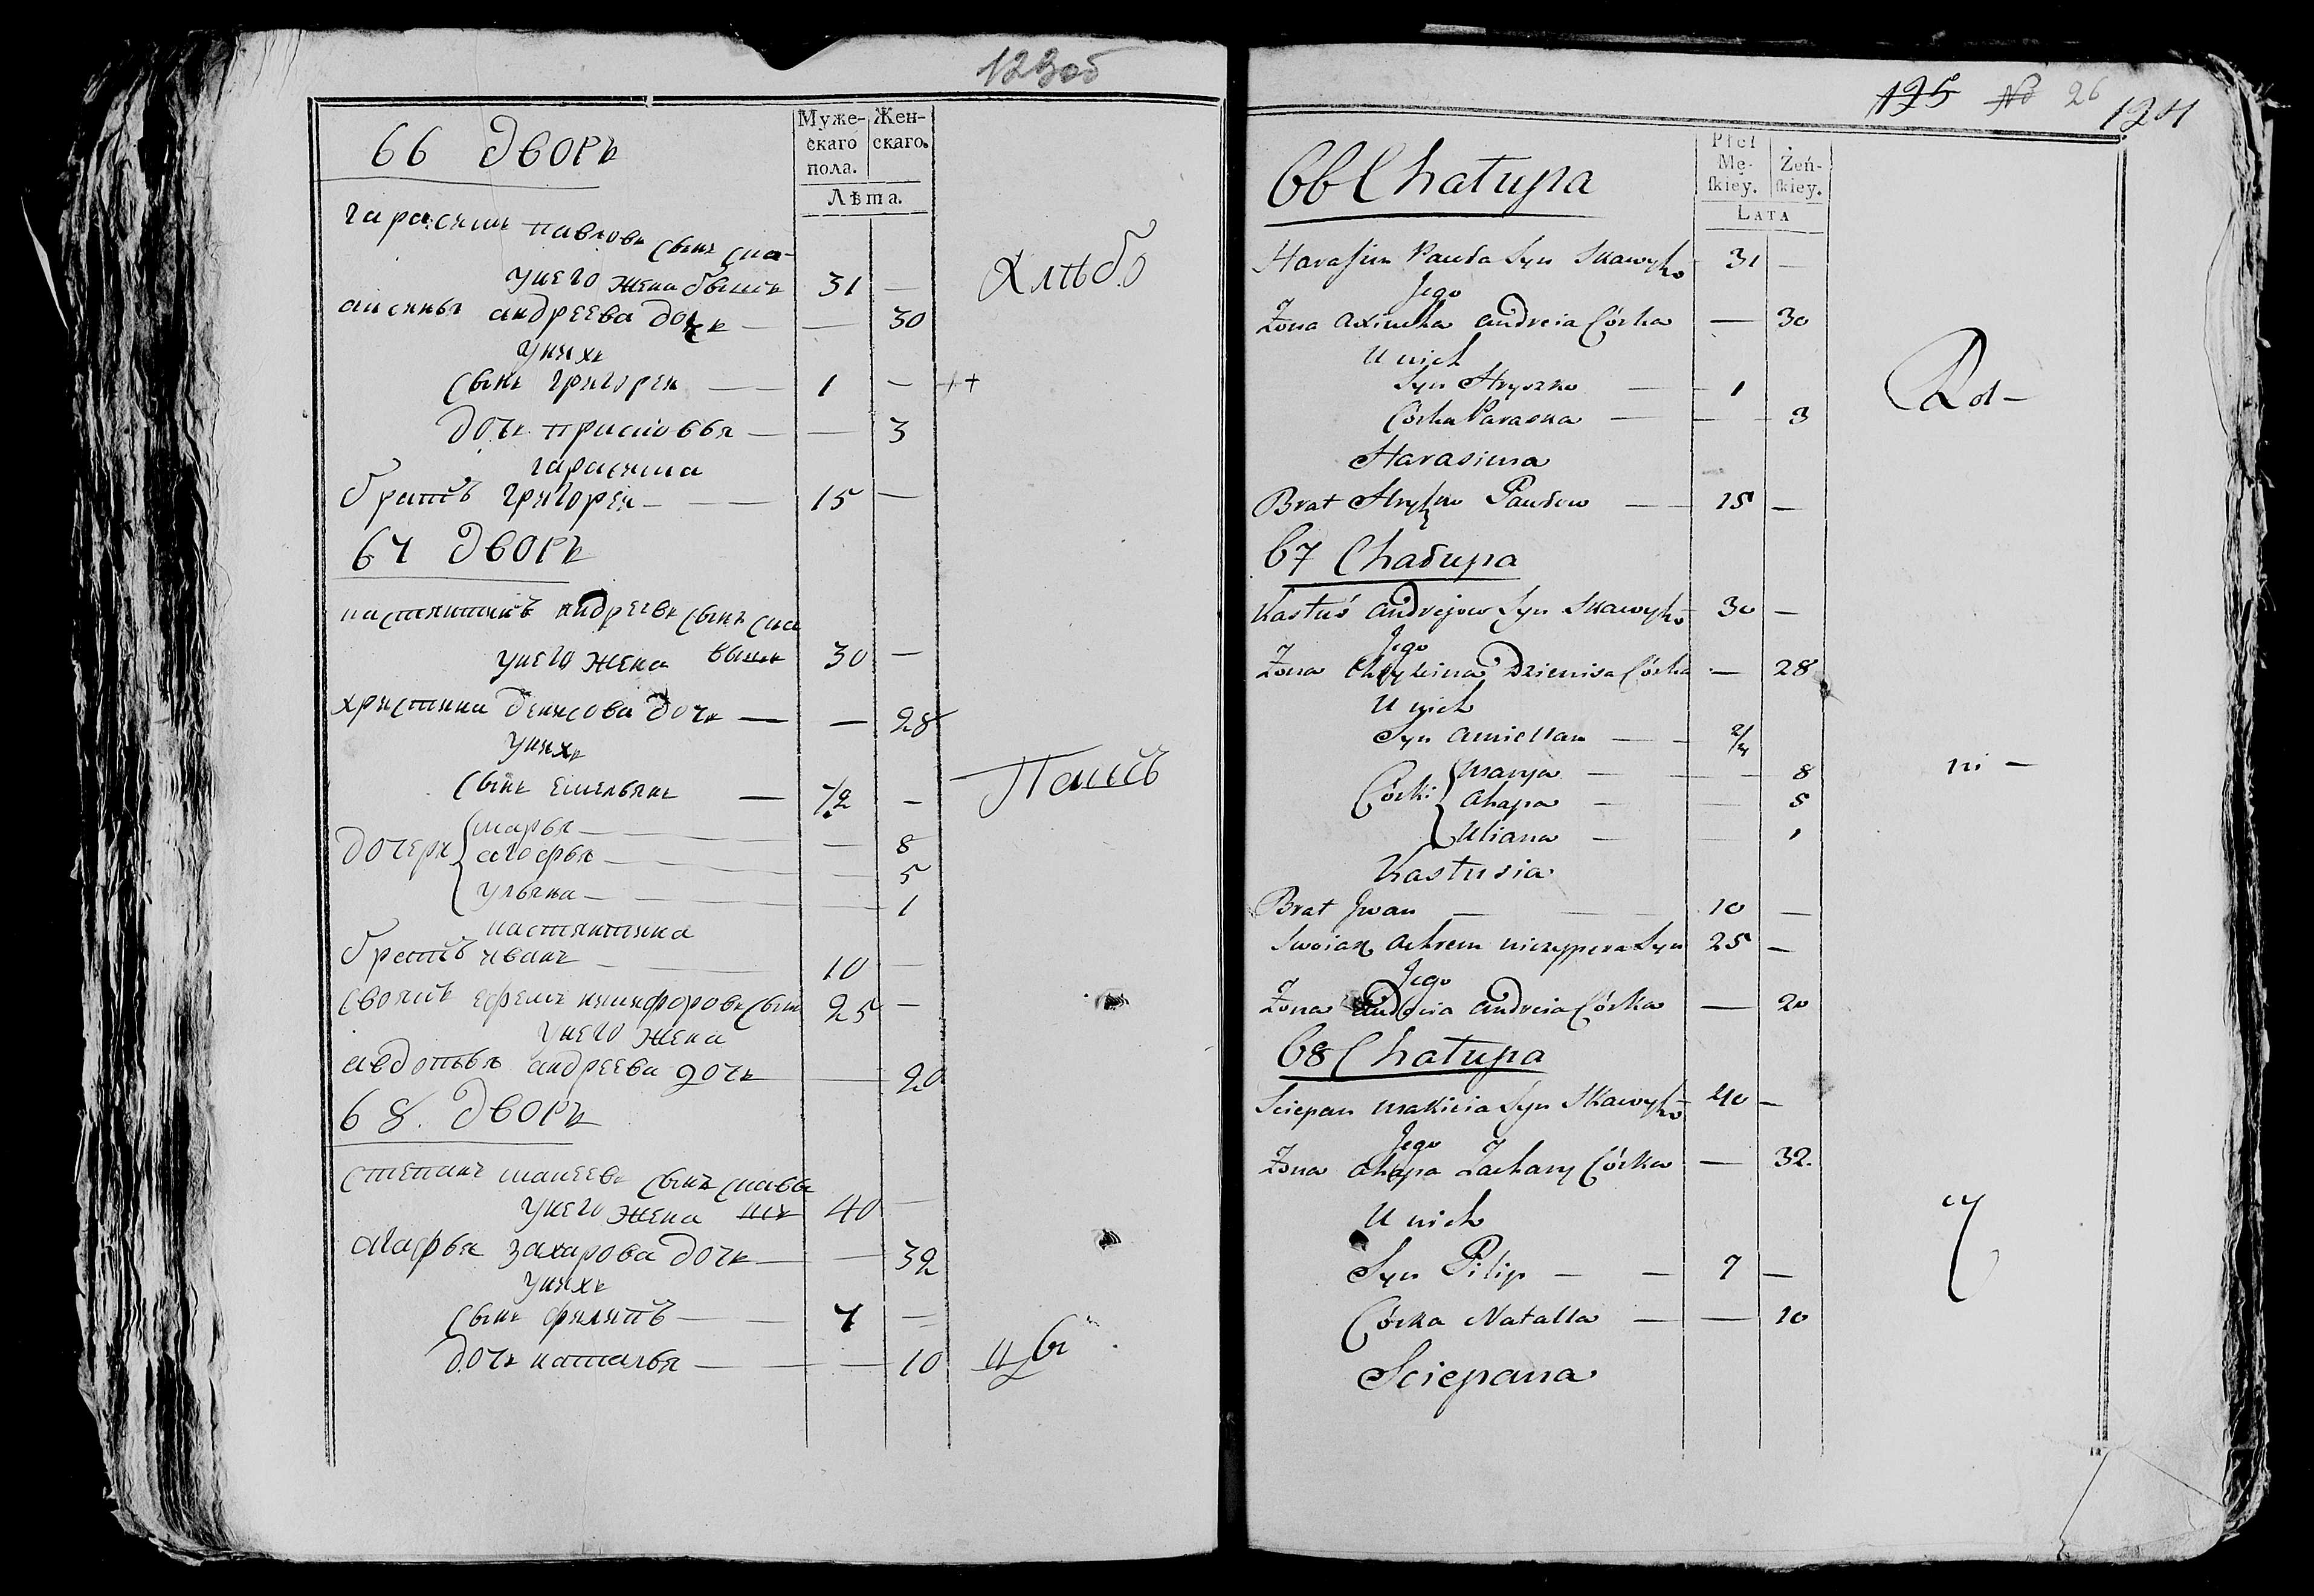 123об
66 Дворъ
Муже-
скаго
пола.
Жен-
скаго.
Лѣта.
гарасимъ павловъ сынъ ска-
унего жена выпъ 31 —
аксинья андреева дочь — — 30
унихъ
сынъ григорей — 1 —
дочь прасковья — — 3
гарасима
братъ григорей — 15 —
Хлѣбо
67 Дворъ
кастянтинъ андреевъ сынъ ска
унего жена 30 —
христина денисова дочь — — 28
унихъ
сынъ емельянъ — —
дочери марья — — 8
агафья — — 5
ульяна — — 1
кастянтина
братъ иванъ — 10 —
своякъ ефремъ никифоровъ сынъ 25 —
унего жена
авдотья андреева дочь — 20
Пашецъ
68. Дворъ
степанъ макеевъ сынъ скавы
унего жена 40 —
агафья захарова дочь — — 32
унихъ
сынъ филипъ — 7 —
дочь наталья — — 10
цы
125 26
124
66 Chałupa
Płci
Mę-
ſkiey.
Żeń-
ſkiey.
Lata
Harasim Pauła Syn Skawyko 31 —
Jego
Żona Axinia Andreia Córka — 30
U nich
Syn Hryszko — 1
Córka Paraska — — 3
Harasima
Brat Hryszko Paułow — 15 —
Rol—
67 Chałupa
Kastuś Andrejow Syn Skawyko 30 —
Jego
Żona Chrystina Dzienisa Córka — 28
U nich
Syn Amiellan —
Córki Marya — — 8
Ahapa — — 5
Uliana — — 1
Kastusia
Brat Jwan — 10 —
Swoiak Achrem Niczypera Syn 25 —
Jego
Żona Andreia Córka — 20
ni —
68 Chałupa
Sciepan Makieia Syn Skawyko 40 —
Jego
Żona Ahapa Zachary Córka — 32.
U nich
Syn Pilip — — 7 —
Córka Natalla — — 10
Sciepana
cy